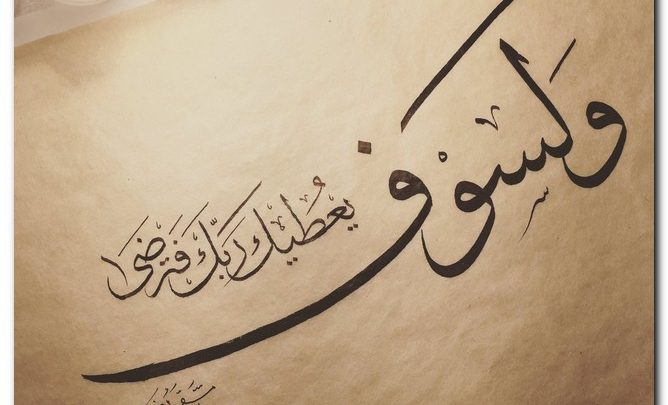 وَلسوْف يُعطَيك رَبّك فَترضَى